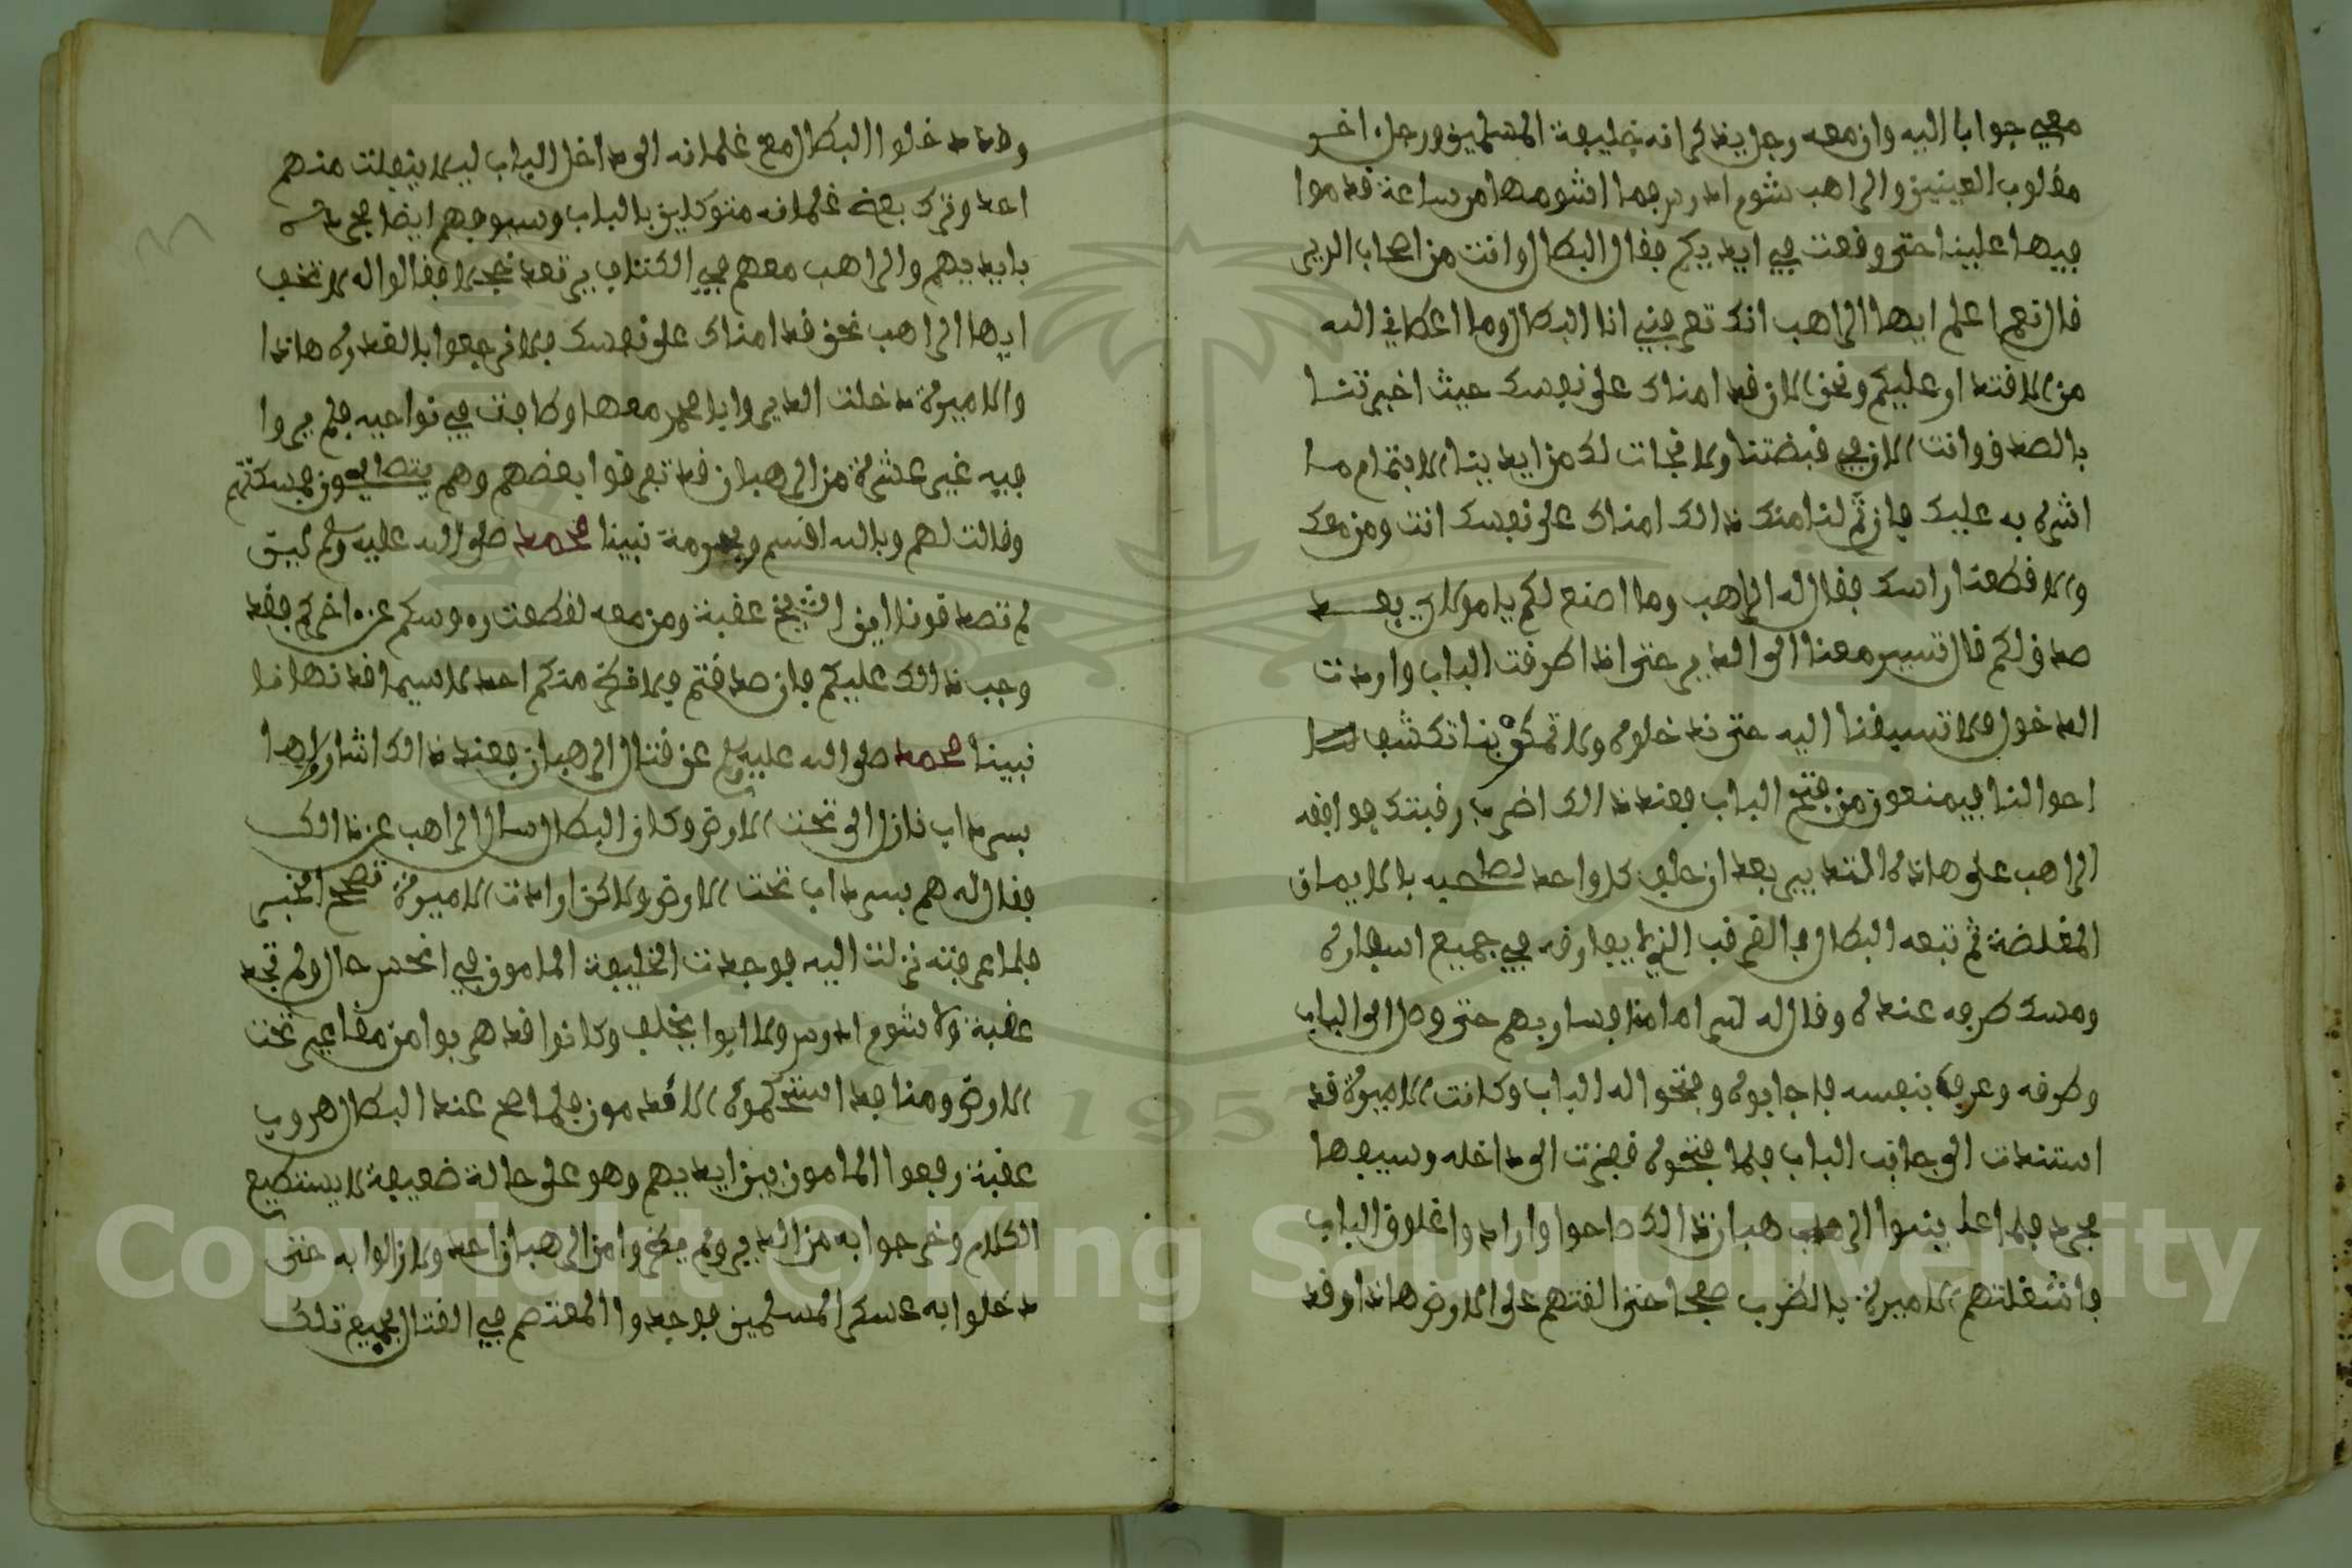 معي جوابا اليه وان معه رجل يذكر انه خليفة المسلمين ورجل اخر
مقلوب العينين والراهب شوم ادروس فما اشومها من ساعة قدموا
فيها علينا حتى وقعت في ايديكم فقال البطال وانت من اصحاب الدير
قال نعم اعلم ايها الراهب انك تعرفني انا البطال وما اعطاني الله
من الاقتدار عليكم ونحن الان قد امناك على نفسك حيث اخبرتنا
بالصدق وانت الان في قبضتنا ولا نجات لك من ايدينا الا بتمام ما
اشره به عليك فان تم لنا منك ذالك امناك على نفسك انت ومن معك
والا قطعنا راسك فقال له الراهب وما اصنع لكم يا مولاي بعد
صدق لكم قال تسير معنا الى الدير حتى اذا طرقت الباب واردت
الدخول فلا تسبقنا اليه حتى ندخلوه ولا تمكر بنا تكشف لنا
احوالنا فيمنعون من فتح الباب فعند ذالك اضرب رقبتك فوافقه
الراهب على هاذه التدبير بعد ان حلف كل واحد لصاحبه بالايمان
المغلضة ثم تبعه البطال بالقرقب الذي لا يفارقه في جميع اسفاره
ومسك طرفه عنده وقال له سر امامنا فسار بهم حتى وصل الى الباب
وطرقه وعرف بنفسه فاجابوه وفتحوا له الباب وكانت الاميرة قد
استندت الى جانب الباب فلما فتحوه قفزت الى داخله وسيفها
مجرد فلما عاينوا الرهبان ذالك صاحوا وارادوا غلوق الباب
فاشغلتهم الاميرة بالضرب صحا حتى القتهم على الارض هاذا وقد
ودخلوا البطال مع غلمانه الى داخل الباب ليلا ينفلت منهم
احد وترك بعض غلمانه متوكلين بالباب وسيوفهم ايضا مجردة
بايديهم والراهب معهم في الكتاف يرتعد خجلا فقالوا له لا تخف
ايها الراهب نحن قد امناك على نفسك فلا نرجعوا بالغدر هاذا
والاميرة دخلت الدير وابا محمد معها وطافت في نواحيه فلم يروا
فيه غير عشرة من الرهبان قد تعرفوا بعضهم وهم يتصايحون فمسكتهم
وقالت لهم وبالله اقسم وبحرمة نبينا محمد صلى الله عليه وسلم ليت
لم تصدقونا اين الشيخ عقبة ومن معه لقطعت رءوسكم عن اخركم فقد
وجب ذالك عليكم فان صدقتم فلا نترك منكم احد لاسيما قد نهانا
نبينا محمد صلى الله عليه وسلم عن قتال الرهبان فعند ذالك اشاروا لها
بسرداب نازل الى تحت الارض وكان البطال سال الراهب عن ذالك
فقال له هم بسرداب تحت الارض ولاكن ارادت الاميرة تصحح الخبر
فلما عرفته نزلت اليه فوجدت الخليفة المامون في انحس حال ولم تجد
عقبة ولا شوم ادروس ولا ابوا يخلف وكانوا قد هربوا من مغاير تحت
الارض ومنافد استحكموه الاقدمون فلما صح عند البطال هروب
عقبة رفعوا المامون بين ايديهم وهو على حالة ضعيفة لا يستطيع
الكلام وخرجوا به من الدير ولم يتركوا من الرهبان احد ولا زالوا به حتى
دخلوا به عسكر المسلمين فوجدوا المعتصم في القتال جميع تلك
Copyright © King Saud University
1957